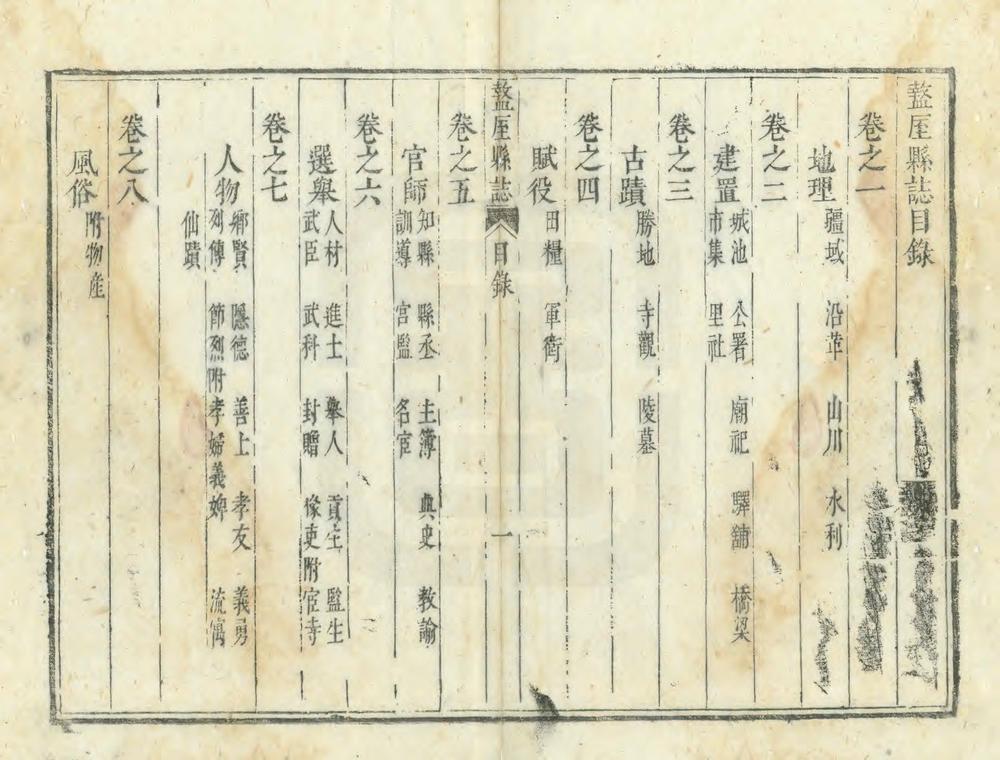 盩厔縣誌目錄
卷之一
地理 疆域 沿革 山川 水利
卷之二
建置 城池 公署 廟祀 驛舖 橋梁
市集 里社
卷之三
古蹟 勝地 寺觀 陵墓
卷之四
賦役 田糧 軍衛
盩厔縣誌 目錄 一
卷之五
官師 知縣 縣丞 主簿 典史 教諭
訓導 宦監 名宦
卷之六
選舉 人材 進士 舉人 貢生 監生
武臣 武科 封贈 掾吏附宦寺
卷之七
人物 鄉賢 隱德 善士 孝友 義勇
列傳 節烈附孝婦義婢 流寓
仙蹟
卷之八
風俗 附物産